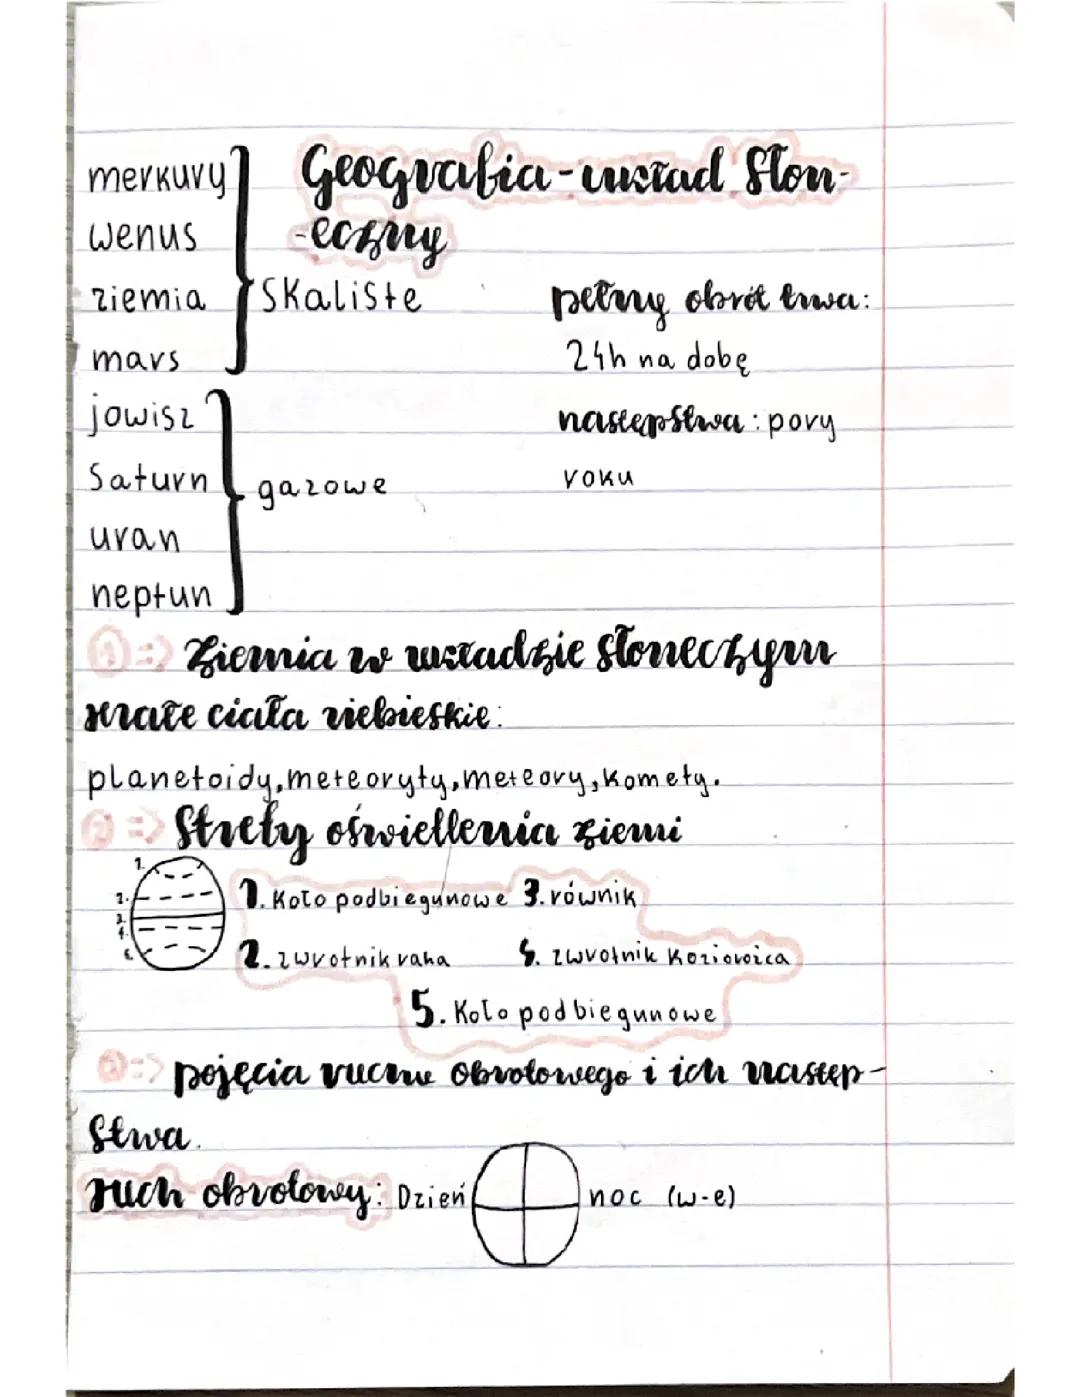 Geografia - układ słon-
-eczny
merkury
wenus
ziemia
mars
skaliste
jowisz
Saturn
uran
neptun
gazowe
pełny obrót trwa:
24h na dobę
następstwa: pory
roku
1 => Ziemia w układzie słoneczym
Małe ciała niebieskie:
planetoidy, meteoryty, meteory, komety.
2 => Strefy oświetlenia ziemi
1.
2.
3.
4.
5.
1. Koło podbiegunowe 3. równik
2. zwrotnik raka 4. zwrotnik Koziorożca
5. Koło podbiegunowe
3 => pojęcia ruchu obrotowego i ich następ-
stwa.
ruch obrotowy: Dzień noc (w-e)